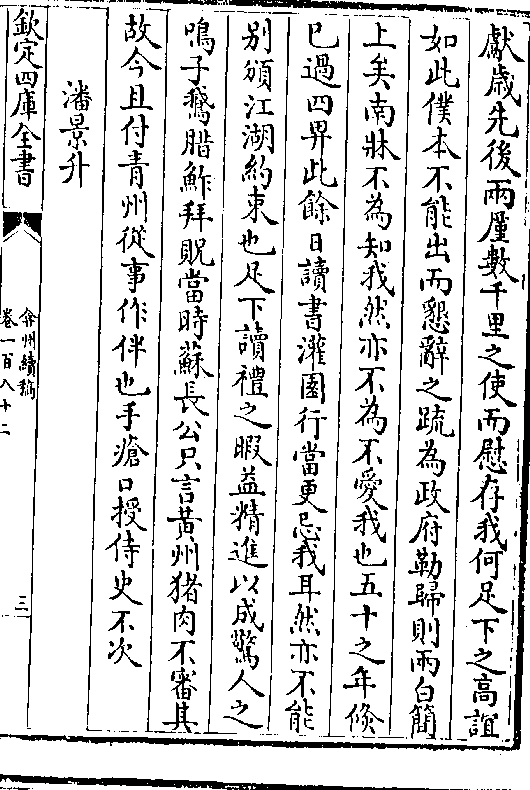 獻歲先後兩厪數千里之使而慰存我何足下之高誼
如此僕本不能出而懇辭之疏為政府勒歸則兩白簡
上矣南牀不為知我然亦不為不愛我也五十之年倐
已過四畀此餘日讀書灌園行當更忘我耳然亦不能
別頒江湖約束也足下讀禮之暇益精進以成驚人之
鳴子鵞腊鮓拜貺當時蘇長公只言黃州猪肉不審其
故今且付青州從事作伴也手瘡口授侍史不次
潘景升
欽定四庫全書
弇州續稿
卷一百八十二
三